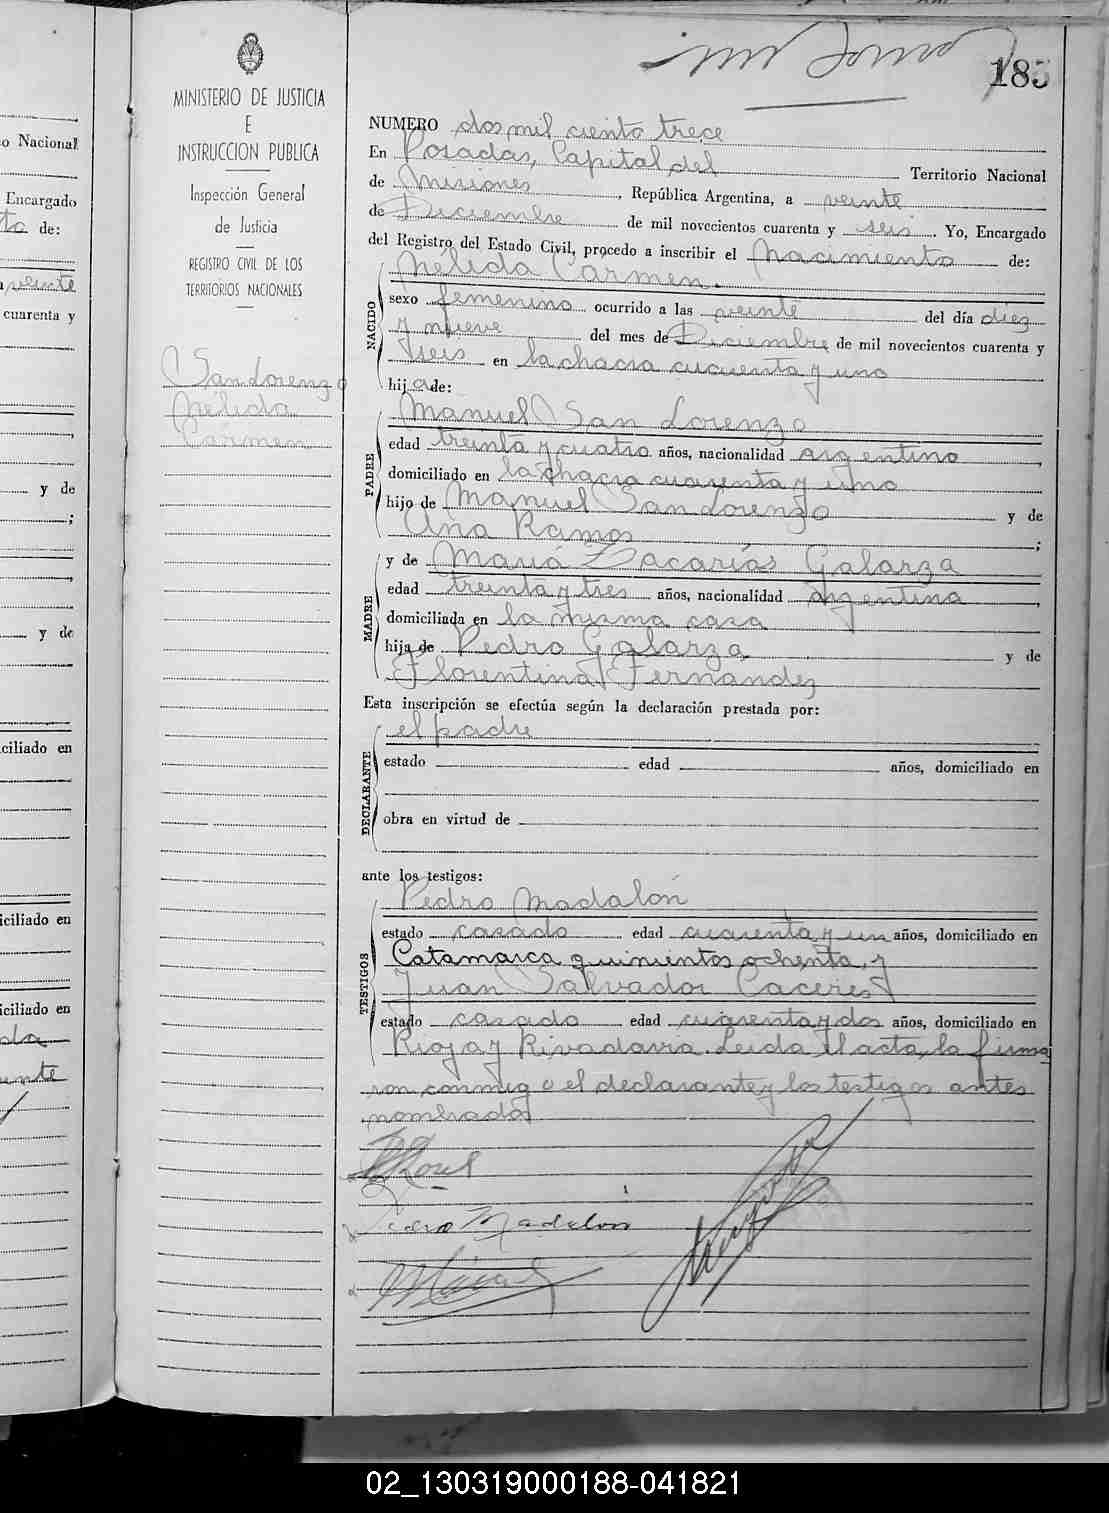 o Nacional
Encargado
to de:
veinte
cuarenta y
y de
;
y de
ciliado en
iciliado en
iciliado en
MINISTERIO DE JUSTICIA
E
INSTRUCCION PUBLICA
Inspección General
de Justicia
REGISTRO CIVIL DE LOS
TERRITORIOS NACIONALES
San Lorenzo
Nélida
Carmen
185
NUMERO dos mil ciento trece
En Posadas, Capital del Territorio Nacional
de Misiones, República Argentina, a veinte
de Diciembre de mil novecientos cuarenta y seis. Yo, Encargado
del Registro del Estado Civil, procedo a inscribir el Nacimiento de:
Nélida Carmen.
NACIDO
sexo femenino ocurrido a las veinte del día diez
y nueve del mes de Diciembre de mil novecientos cuarenta y
seis en la chacra cuarenta y uno
hija de:
Manuel San Lorenzo
PADRE
edad treinta y cuatro años, nacionalidad argentino,
domiciliado en la chacra cuarenta y uno
hijo de Manuel San Lorenzo y de
Ana Ramos;
y de María Zacarías Galarza
MADRE
edad treinta y tres años, nacionalidad argentina,
domiciliada en la misma casa
hija de Pedro Galarza y de
Florentina Fernandez
Esta inscripción se efectúa según la declaración prestada por:
el padre
DECLARANTE
estado edad años, domiciliado en
obra en virtud de
ante los testigos:
Pedro Madalón
TESTIGOS
estado casado edad cuarenta y un años, domiciliado en
Catamarca quinientos ochenta y
Juan Salvador Caceres
estado casado edad cuarenta y dos años, domiciliado en
Rioja y Rivadavia. Leida el acta, la firma
ron conmigo el declarante y los testigos antes
nombrados
Pedro Madalón
02_130319000188-041821